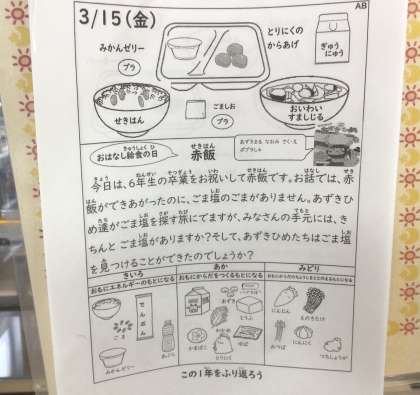 AB
3/15(金)
みかんゼリー
プラ
とりにくの
からあげ
ぎゅう
にゅう
せきはん
ごましお
プラ
おいわい
すましじる
きゅうしょく ひ
おはなし給食の日
せきはん
赤飯
あずきまる なおみ さく・え
ポプラしゃ
今日は、6年生の卒業をお祝いして赤飯です。お話では、赤
飯ができあがったのに、ごま塩のごまがありません。あずきひ
め達がごま塩を探す旅にでますが、みなさんの手元には、き
ちんと ごま塩がありますか?そして、あずきひめたちはごま塩
を見つけることができたのでしょうか?
きいろ
あか
みどり
おもにエネルギーのもとになる
おもにからだをつくるもとになる
おもにからだのちょうしをととのえるもとになる
ごま
でんぷん
あぶら
みかんゼリー
あずき
とうふ
わかめ
かまぼこ
とりにく
ゆば
にんじん
えのきたけ
みつば
にんにく
つちしょうが
この1年をふり返ろう